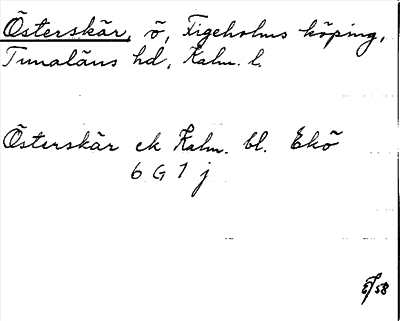 Österskär, ö, Figeholms köping,
Tunaläns hd, Kalm. l.
Österskär ek Kalm. bl. Ekö
6 G 7 j